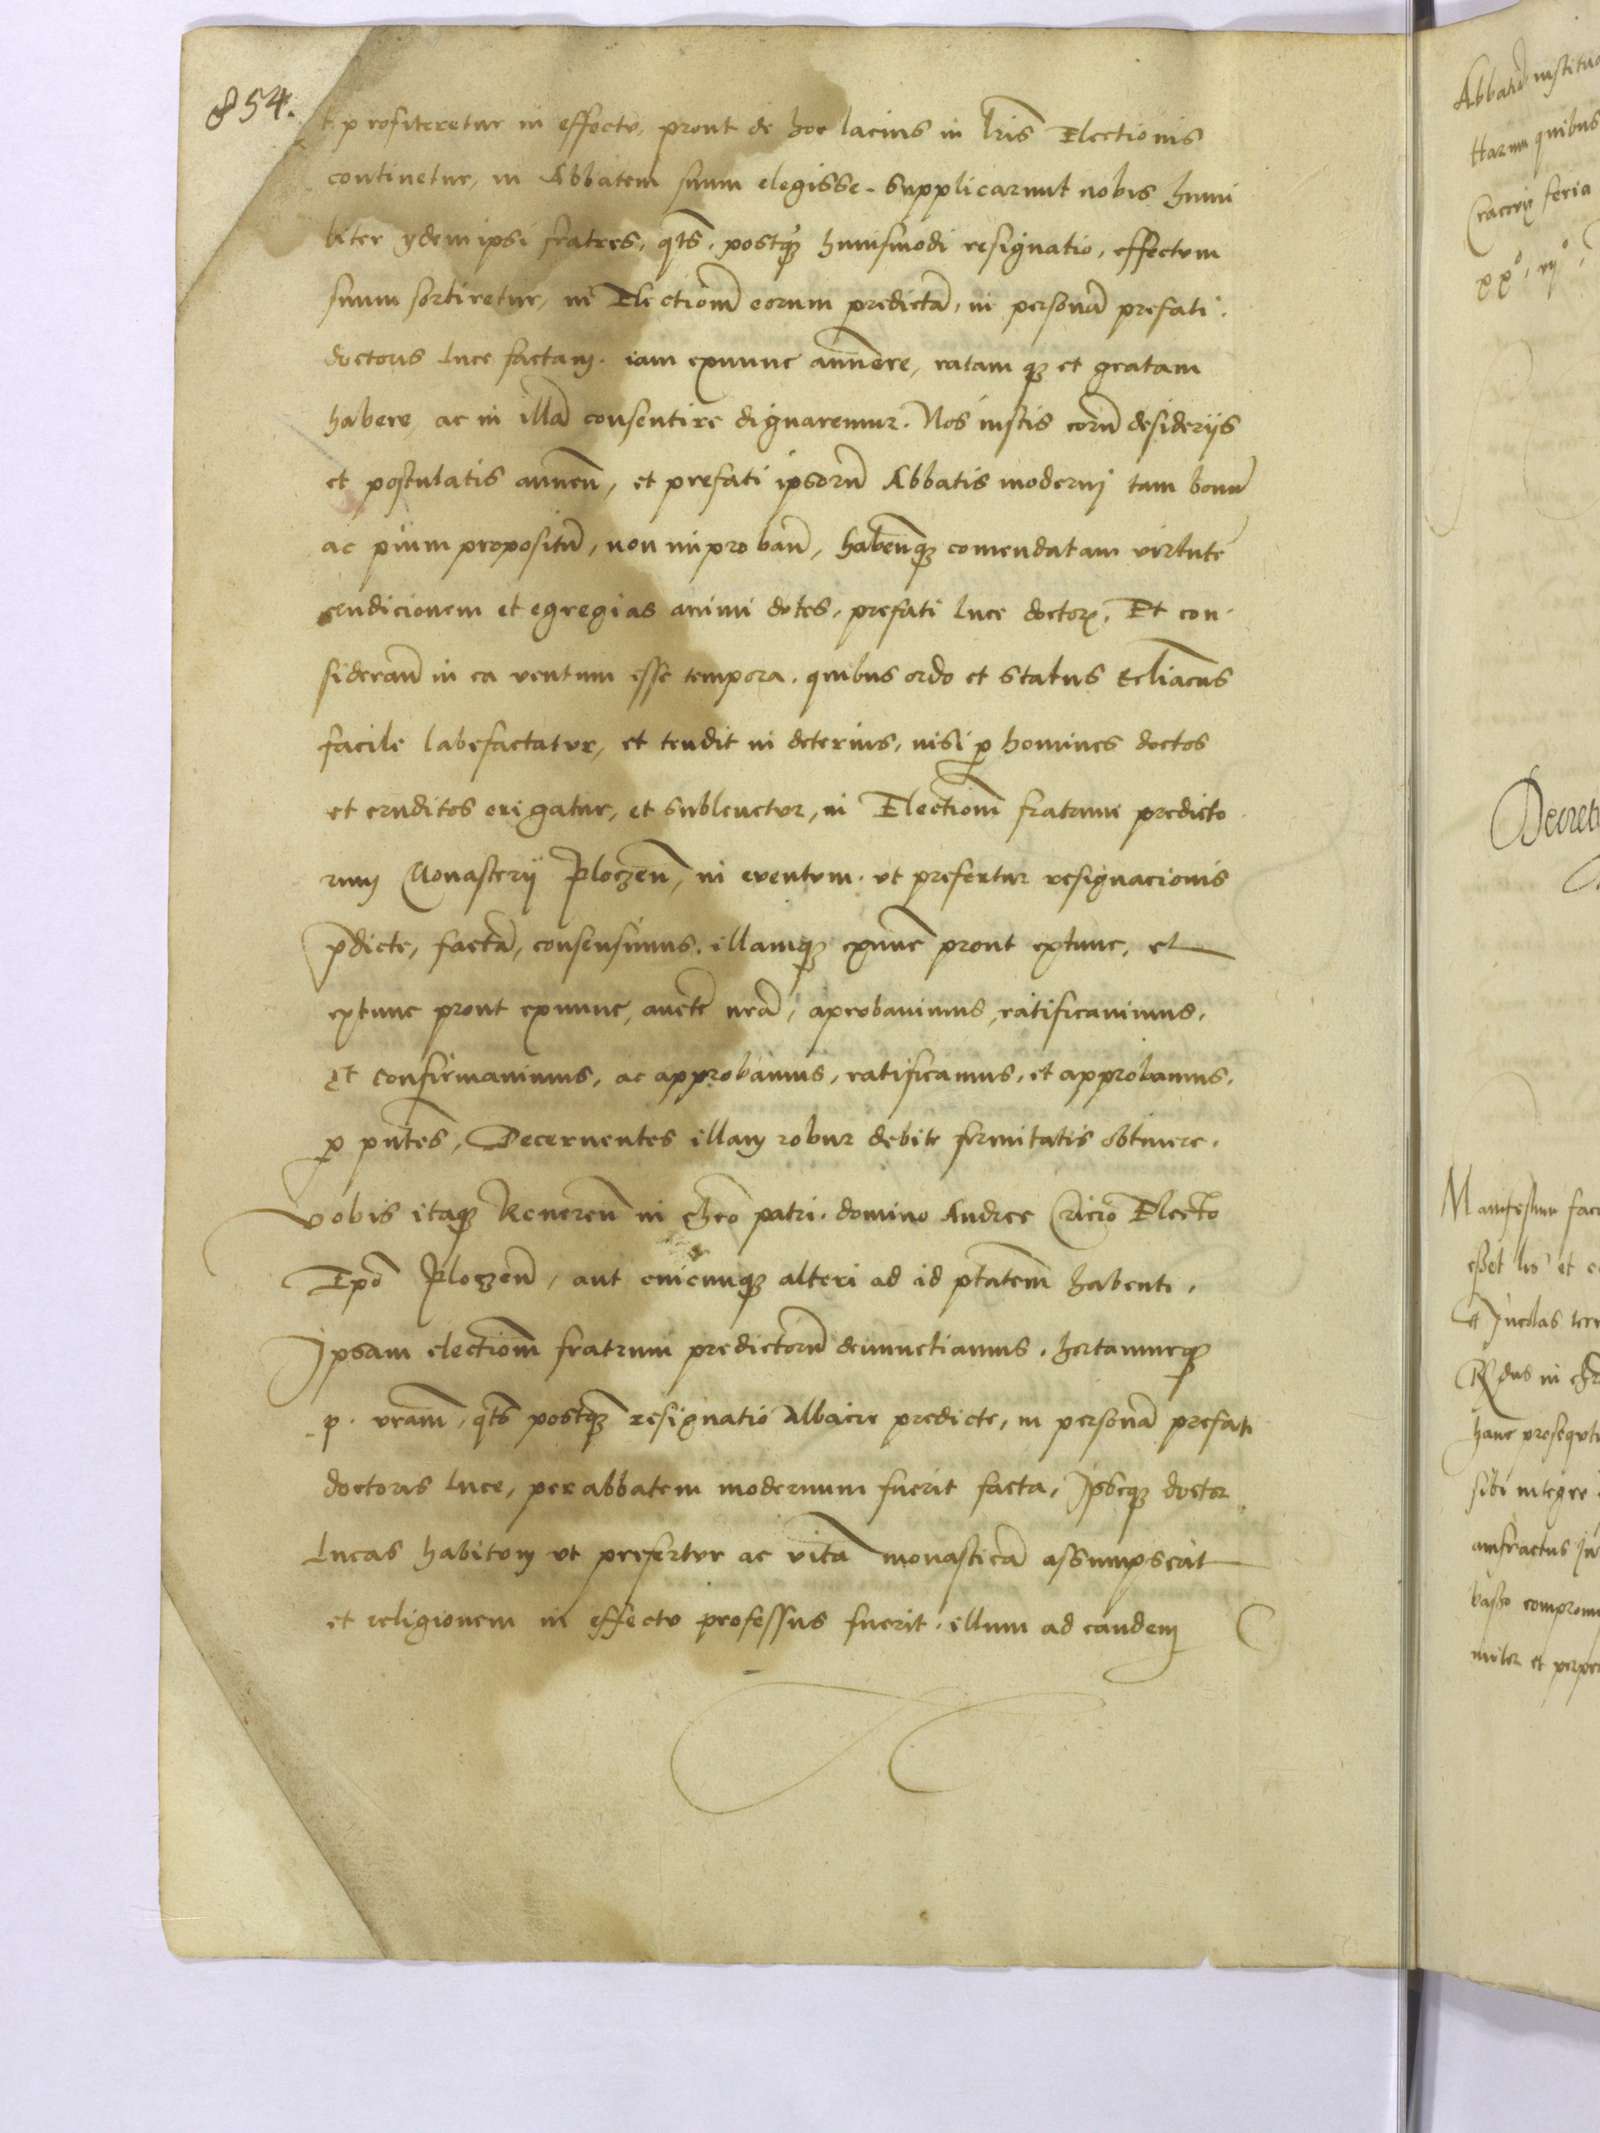 854.
t profiteretur in effectu, prout de hoc lacius in lris Electionis
continetur, in Abbatem suum elegisse. supplicarunt nobis humi
liter ydem ipsi fratres, qts, postq huiusmodi resignatio, effectum
suum sortiretur, in Electionem eorum predicta, in persona prefati
doctoris Luce factam. iam exnunc annuere, ratam q et gratam
habere, ac in illa consentire dignaremur. Nos iustis eoru desiderijs
et postulatis annuen, et prefati ipsoru Abbatis moderni tam bonu
ac pium propositu, non improban, habenq comendatam virtute
erudicionem et egregias animi dotes, prefati Luce doctoris. Et con
sideran in ea ventum esse tempora, quibus ordo et status Ecliacus
facile labefactatur, et tendit in deterius, nisi p homines doctos
et eruditos erigatur, et subleuetur, in Electionem fratrum predicto
rum Monasterij Ploczen, in euentum ut prefertur resignacionis
pdicte, facta, consensimus. illamq exnunc prout extunc, et
extunc prout exnunc, aucte nra, aprobauimus, ratificauimus,
et confirmauimus, ac approbamus, ratificamus, et approbamus,
p pntes, Decernentes illam robur debite firmitatis obtinere.
Vobis itaq Reueren in chro patri domino Andree Cricio Electo
Epo Ploczen, aut cuicunq alteri ad id ptatem habenti,
Ipsam electionem fratrum predictoru denunctiamus, hortamurq
p. vram, qts postq resignatio Abbacie predicte, in persona prefati
doctoris Luce, per abbatem modernum fuerit facta, Ipseq doctor
Lucas habitum ut prefertur ac vita monastica assumpserit
et religionem in effectu professus fuerit, illum ad eandem
Harum quibus
feria
Manifestum
esset lis et
et Incolas terr
Rdus in
hanc
sibi integre
anfractus